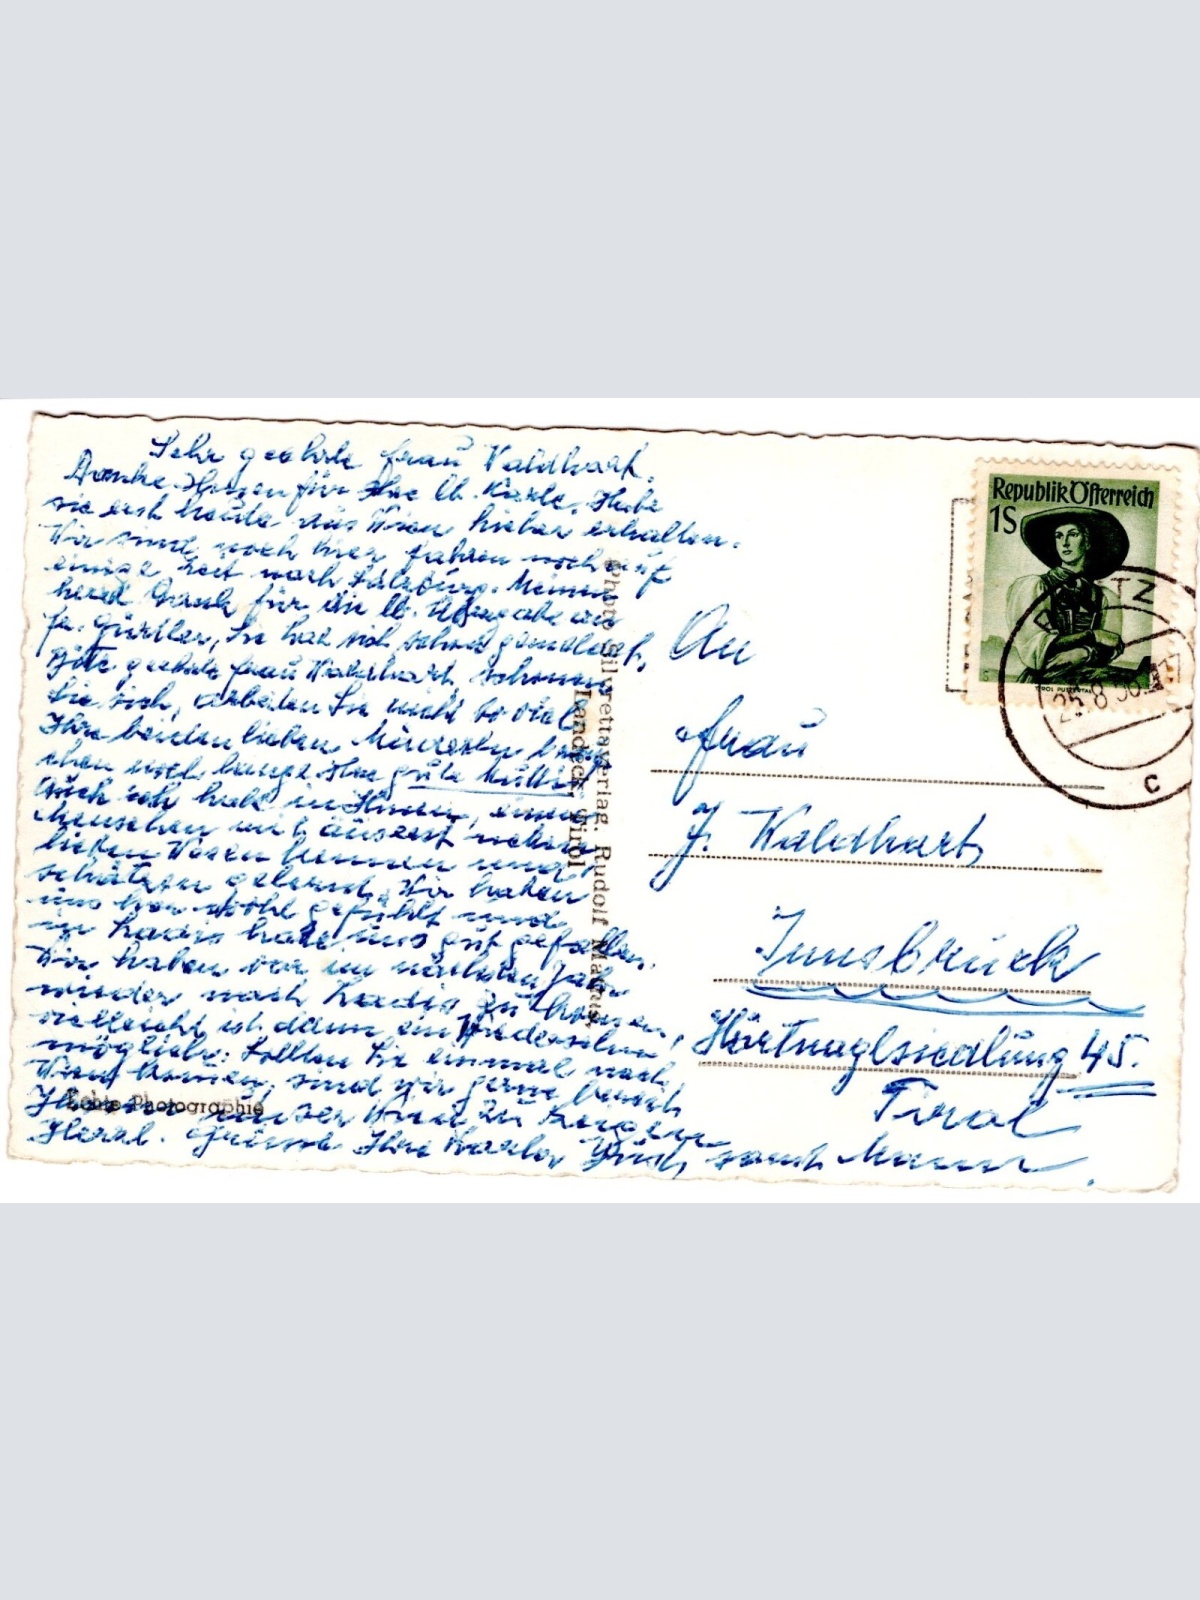 Sehr geehrte Frau Waldhart.
Danke Ihnen für Ihre lb. Karte. Habe
sie erst heute aus Wien hieher erhalten.
Wir sind noch hier fahren noch auf
einige Zeit nach Salzburg. Meinen
herzl. Dank für die lb. Übergabe an
Fr. Gürtler, Sie hat sich schon gemeldet.
Bitte geehrte Frau Waldhart schonen
Sie sich, arbeiten Sie nicht so viel
Ihre beiden lieben
noch lange Ihre gute Mutti.
Auch ich habe in Ihnen, einen
Menschen mit äuserst
lieben Wesen kennen und
schätzen gelernt. Wir haben
uns wohl gefühlt und
in Ladis hat es uns gut gefallen.
Wir haben vor im nächsten Jahr
wieder nach Ladis zu kommen,
vielleicht ist dann ein Wiedersehen
möglich. Sollten Sie einmal nach
Wien kommen, sind wir gerne bereit
Ihnen unser Wien zu zeigen
Herzl. Grüsse Ihre samt Mann.
Echte Photographie
Photo: Silvrettaverlag. Rudolf Mathis,
Landeck, Tirol
Republik Österreich
1S
TIROL PUSTERTAL
25.8.56
c
An
Frau
J. Waldhart
Innsbruck
Hörtnaglsiedlung 45.
Tirol